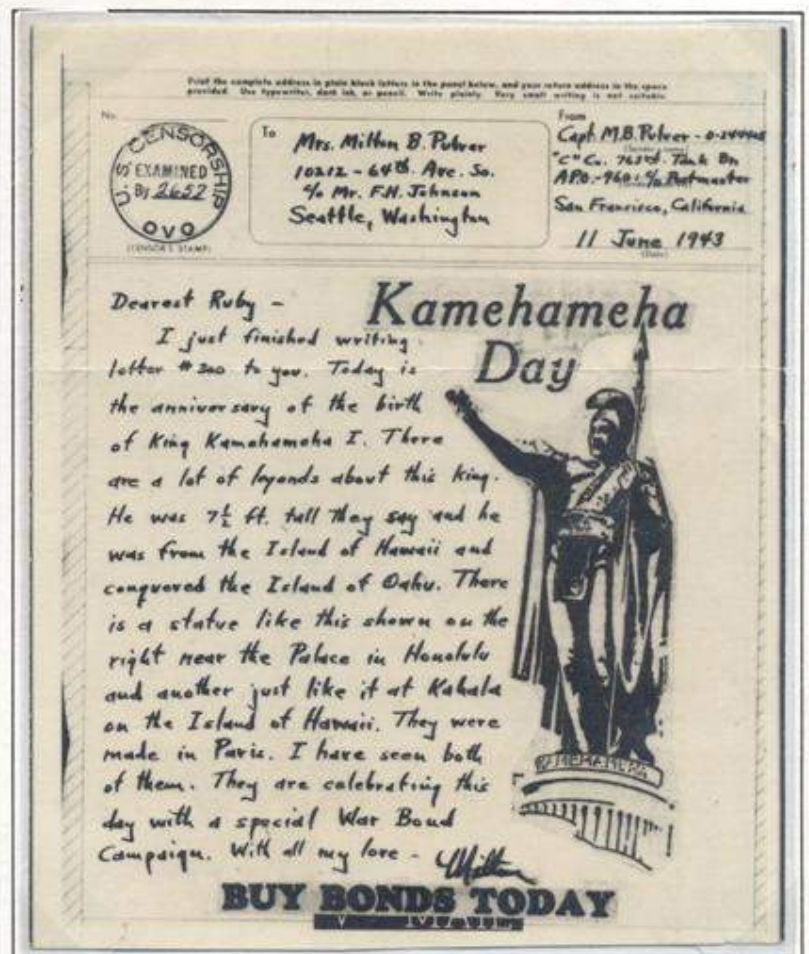 Print the complete address in plain block letters in the panel below, and your return address in the space
provided. Use typewriter, dark ink, or pencil. Write plainly. Very small writing is not suitable.
No.
U.S. CENSORSHIP
EXAMINED
By 2652
OVO
(CENSOR'S STAMP)
To
Mrs. Milton B. Pulver
10212 - 64th. Ave. So.
c/o Mr. F.H. Johnson
Seattle, Washington
From
Capt. M.B. Pulver -
(Sender's name)
"C" Co. 763rd. Tank Bn
A.P.O.-960 : c/o Postmaster
San Francisco, California
11 June 1943
(Date)
Kamehameha
Day
Dearest Ruby -
I just finished writing
letter #300 to you. Today is
the anniversary of the birth
of King Kamehameha I. There
are a lot of legends about this King.
He was 7½ ft. tall they say and he
was from the Island of Hawaii and
conquered the Island of Oahu. There
is a statue like this shown on the
right near the Palace in Honolulu
and another just like it at Kahala
on the Island of Hawaii. They were
made in Paris. I have seen both
of them. They are celebrating this
day with a special War Bond
Campaign. With all my love - Milton
KAMEHAMEHA
BUY BONDS TODAY
V···-MAIL